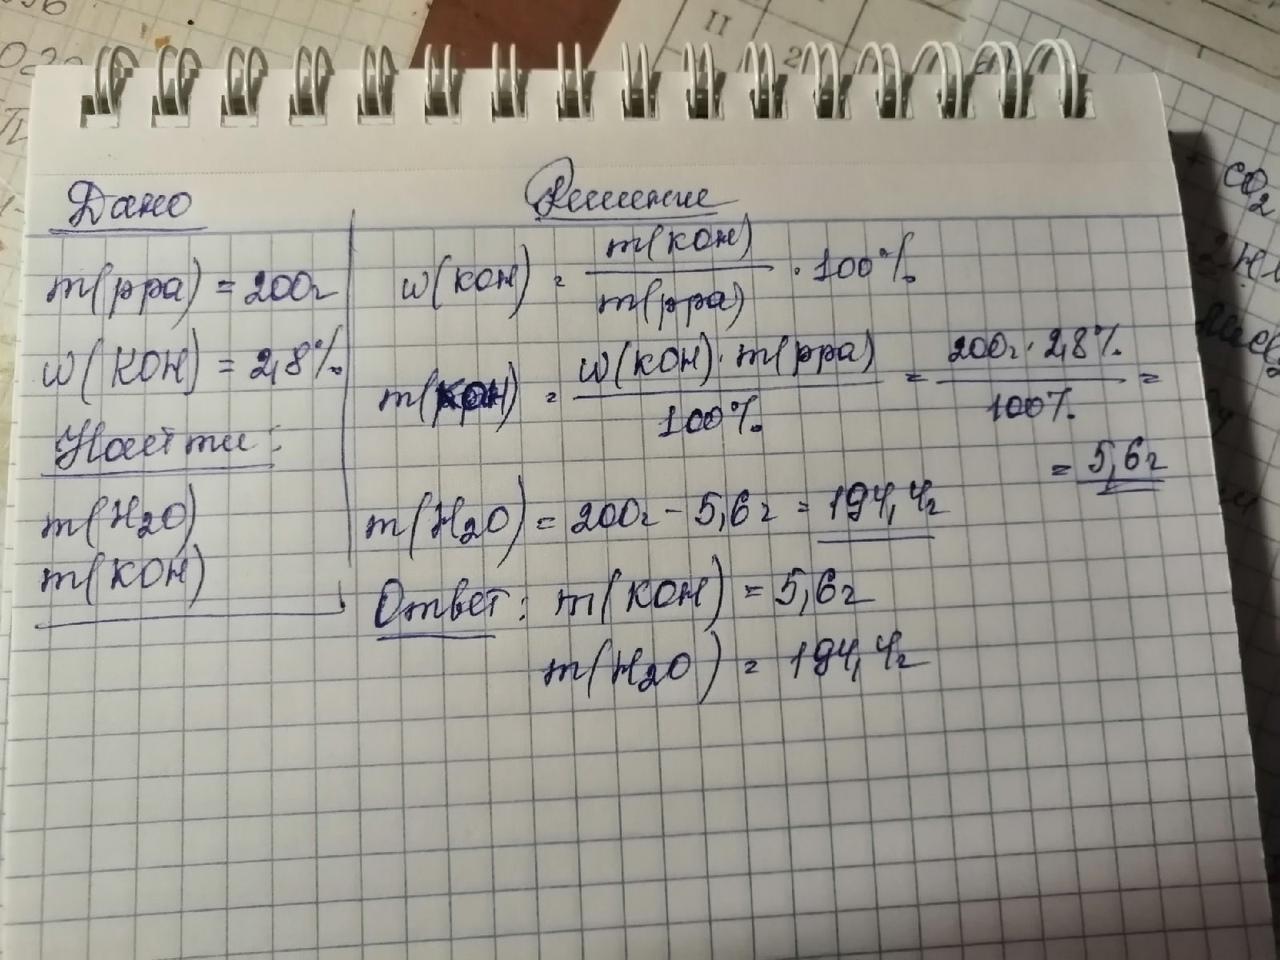 Дано
m(рра) = 200г
w(KOH) = 2,8%
Найти:
m(H2O)
m(KOH)
Решение
w(KOH) = m(KOH) / m(рра) · 100%
m(KOH) = w(KOH) · m(рра) / 100% = 200г · 2,8% / 100% =
= 5,6г
m(H2O) = 200г - 5,6г = 194,4г
Ответ: m(KOH) = 5,6г
m(H2O) = 194,4г
CO2
II
2